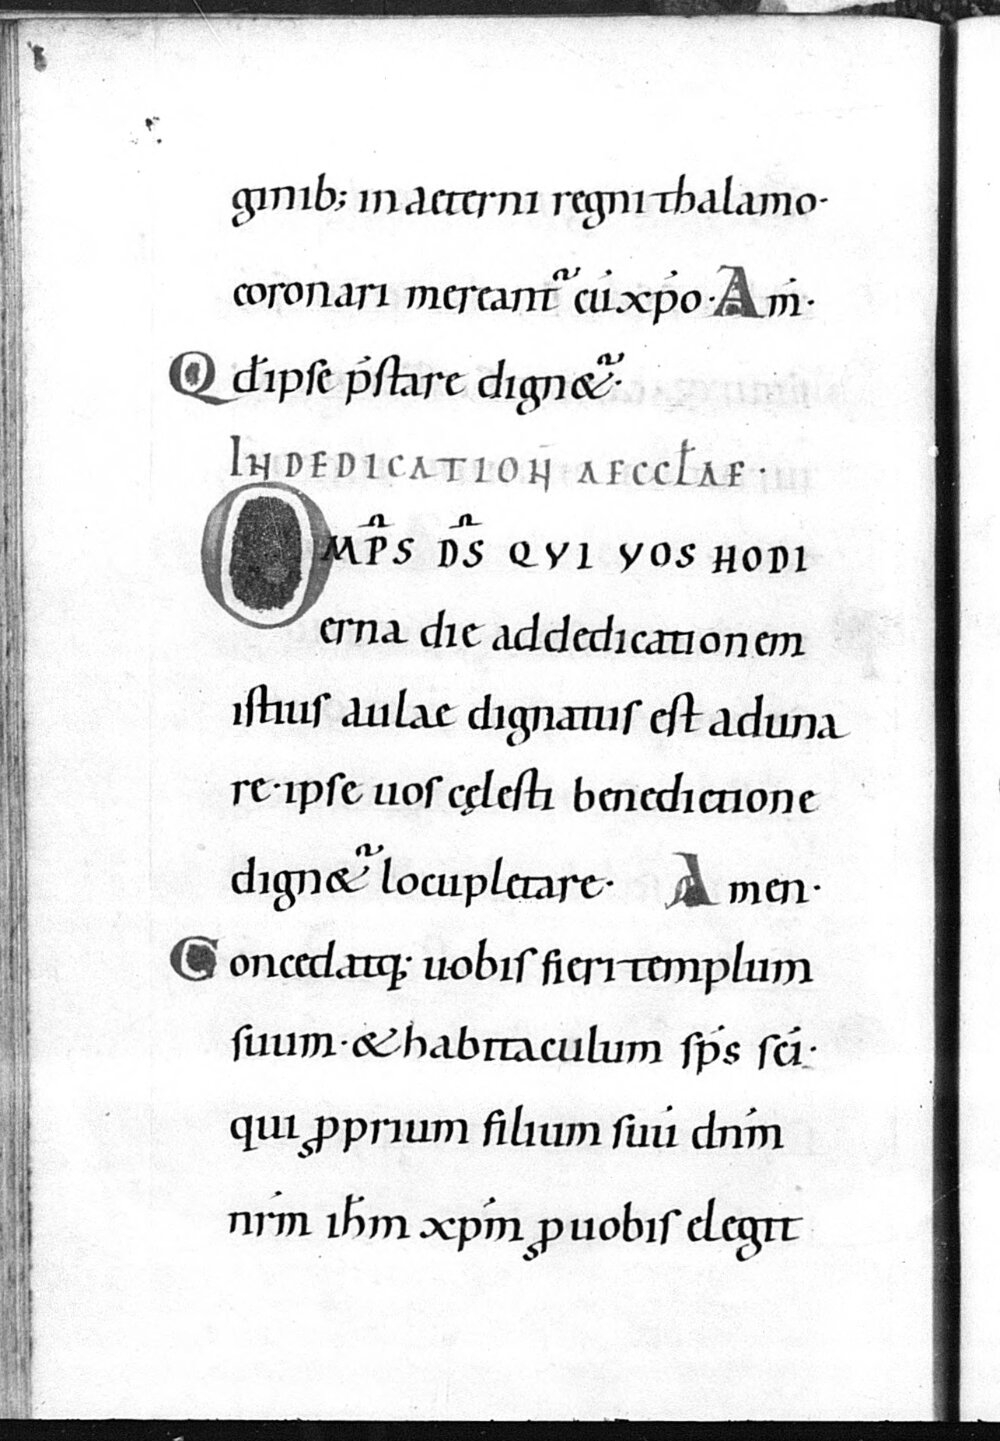 ginib; in aeterni regni thalamo·
coronari mereant᷑ cū xp̄o· Am̄·
Qd̄ ipse p̄stare dign&᷑·
IN DEDICATION̄ AECCŁAE·
OMP̄S D̄S QVI VOS HODI
erna die ad dedicationem
istius aulae dignatus est aduna
re· ipse uos cęlesti benedictione
dign&᷑ locupletare· Amen·
Concedatq; uobis fieri templum
suum· & habitaculum sp̄s sc̄i·
qui ꝓprium filium suū dn̄m
nr̄m ih̄m xp̄m ꝓ uobis elegit